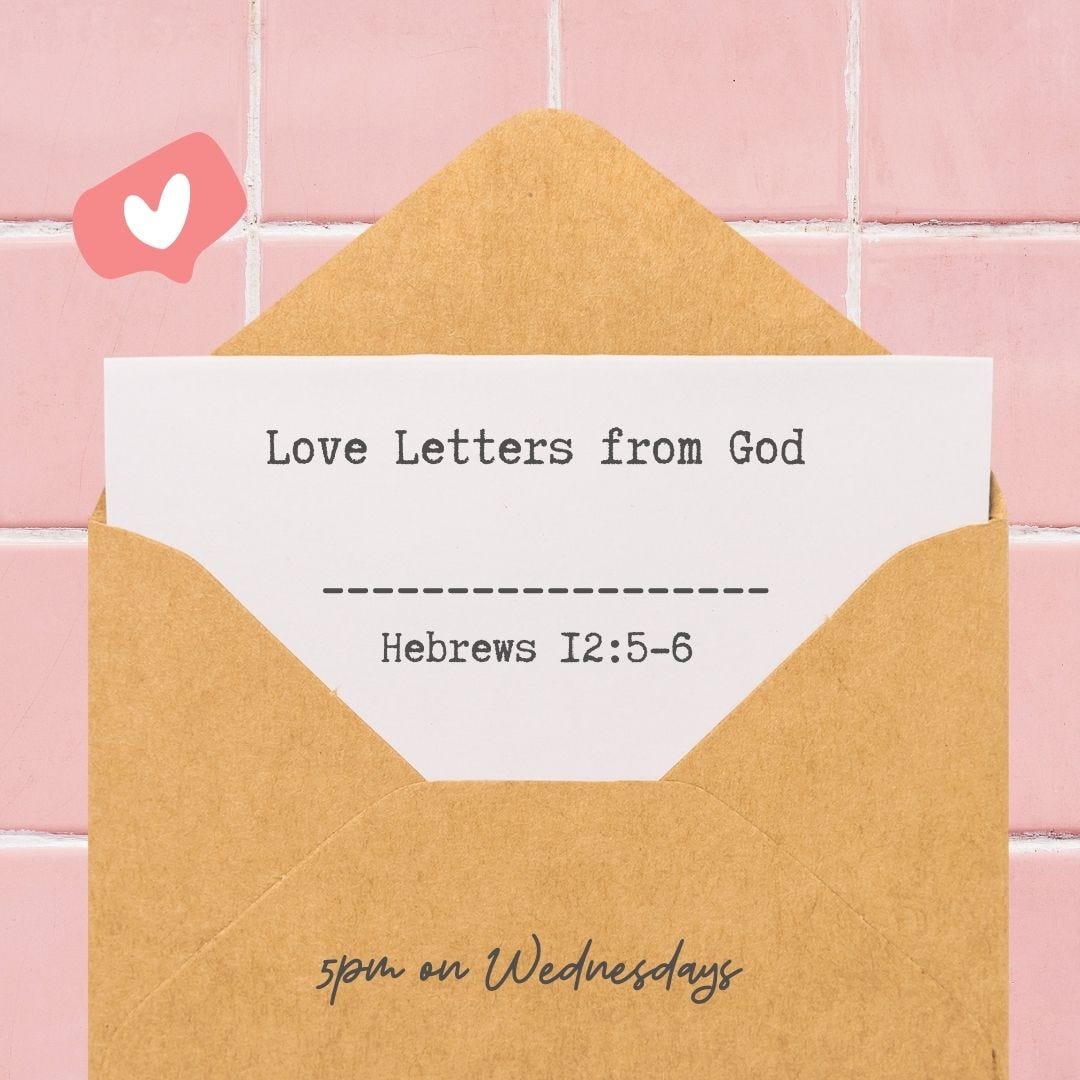 Love Letters from God
-------------------
Hebrews 12:5-6
5pm on Wednesdays